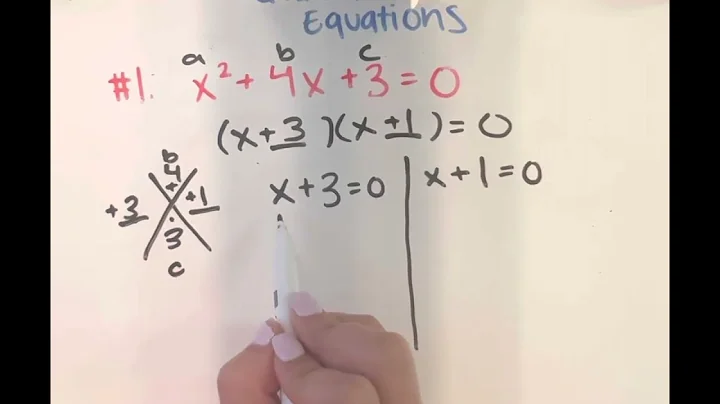 Equations
a b c
#1: x² + 4x + 3 = 0
(x + 3)(x + 1) = 0
b
4
+
+3 +1
·
3
c
x + 3 = 0 | x + 1 = 0